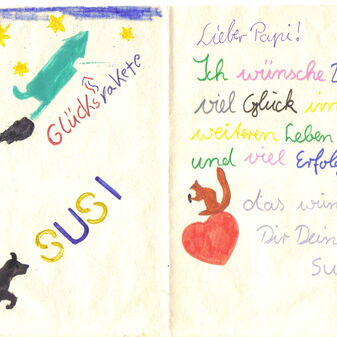 Glücksrakete
SUSI
Lieber Papi!
Ich wünsche
viel Glück im
weiteren Leben
und viel Erfolg
das wün
Dir Dein
Su